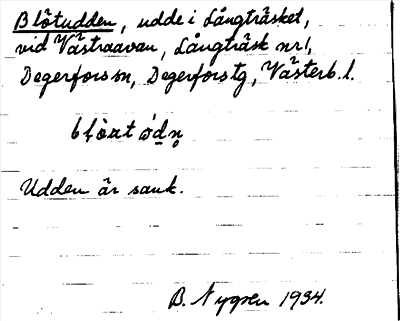 Blötudden, udde i Långträsket,
vid Västraavan, Långträsk nr 1,
Degerfors sn, Degerfors tg, Västerb. l.
Udden är sank.
B. Nygren 1934.